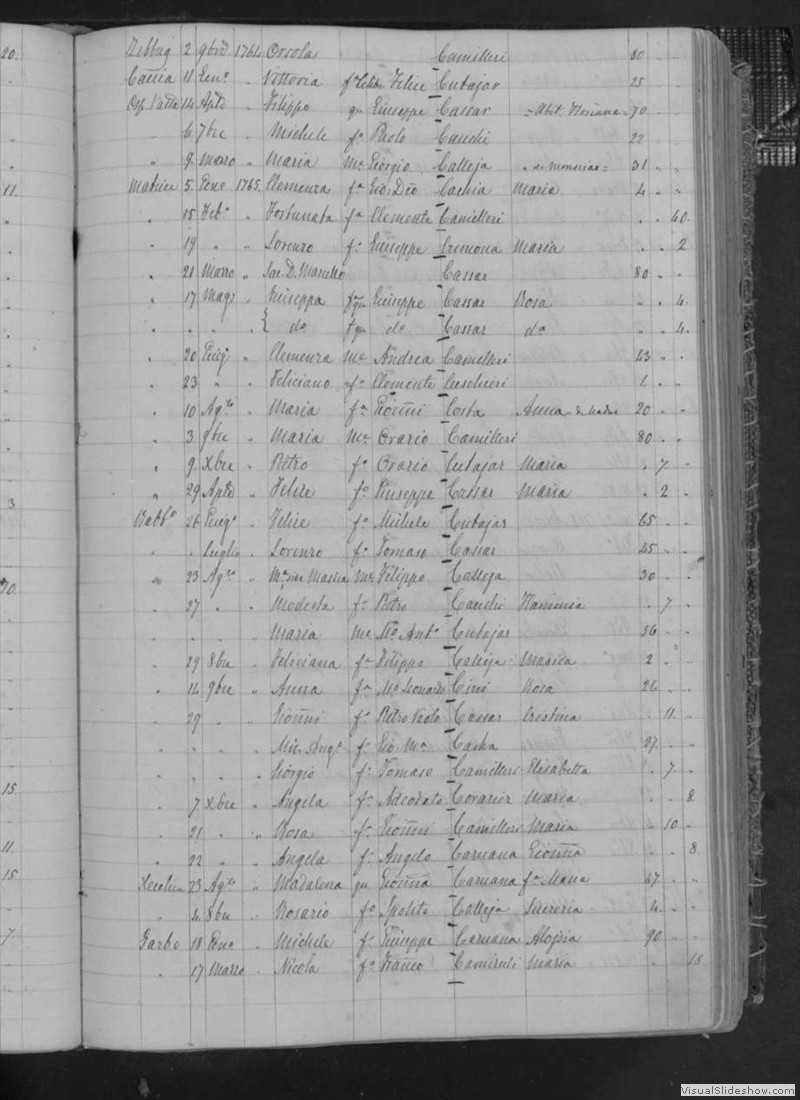 20.
Zebbug 2 9bre 1764 Orsola Camilleri 80
Caccia 11 Gen° " Vittoria fa Felice Cutajar 25
14 Aple Filippo qu Giuseppe Cassar = Abit. Floriana = 70
" 6 7bre " Michele fo Paolo Cauchi 22
" 9 Marzo " Maria Me Giorgio Calleja 31
11. Matrice 5 Gen° 1765 Clemenza fa Gio: Dio Cachia Maria 4
" 15 Feb° " Fortunata fa Clemente Camilleri 40
" 19 " " Lorenzo fo Giuseppe Cremona Maria 2
" 21 Marzo " Sac. D. Marcello Cassar 80
" 17 Magg° " Giuseppa fqu Giuseppe Cassar Rosa 4
" " " { da fqu do Cassar da 4
" 20 Giug° " Clemenza Me Andrea Camilleri 43
" 23 " " Feliciano fo Clemente 1
" 10 Agto " Maria fa Gioñni Costa Anna 20
" 3 9bre " Maria Me Orazio Camilleri 80
" 9 Xbre " Pietro fo Orazio Cutajar Maria 7
" 29 Aple " Felice fo Giuseppe Cassar Maria 2
3
Rabbto 26 Giugo " Felice fo Michele Cutajar 65
" " Luglio " Lorenzo fo Tomaso Cassar 45
70. " 23 Agto " Me Filippo Calleja 30
" 27 " " Modesta fa Pietro Cauchi Flaminia 7
" " " " Maria Me Anto Cutajar 56
" 29 8bre " Feliciana fa Filippo Calleja Marica 2
" 16 9bre " Anna fa Leonardo Rosa 26
" 29 " " Gioñni fo Pietro Paolo Cassar Cristina 11
" " " Mic. Ange fo Gio. Ma 27
" " " Giorgio fo Tomaso Camilleri Elisabetta 7
15. " 7 Xbre " Angela fa Adeodato Maria 8
" 21 " " Rosa fa Gioñni Camilleri Maria 10
11. " 22 " " Angela fa Angelo Caruana Gioñna 8
15. 23 Agto " Madalena qu Gioñna Caruana fa Maria 67
" 4 8bre " Rosario fo Ipolito Calleja 4
7. Garbo 18 Gen° " Michele fo Giuseppe Caruana Aloisia 90
" 17 Marzo " Nicola fo Franco Maria 18
VisualSlideshow.com